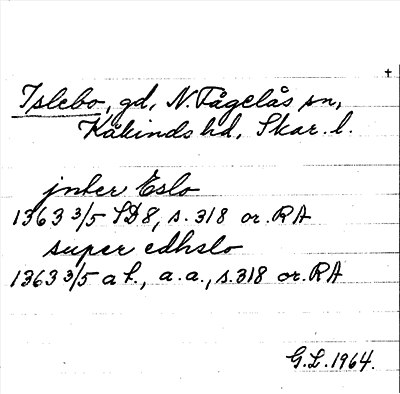 +
Islebo, gd, N. Fågelås sn,
Kåkinds hd, Skar. l.
jnter Eslo
1363 3/5 SD8, s. 318 or. RA
super edhslo
1363 3/5 a f., a.a., s. 318 or. RA
G.L. 1964.